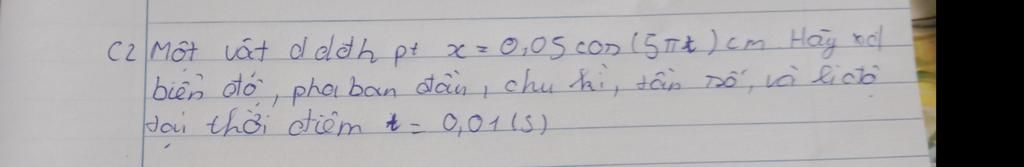 C2 Một vật dđđh pt x = 0,05 cos (5πt) cm Hãy xđ
biên độ, pha ban đầu, chu kì, tần số, và li độ
tại thời điểm t = 0,01 (s)